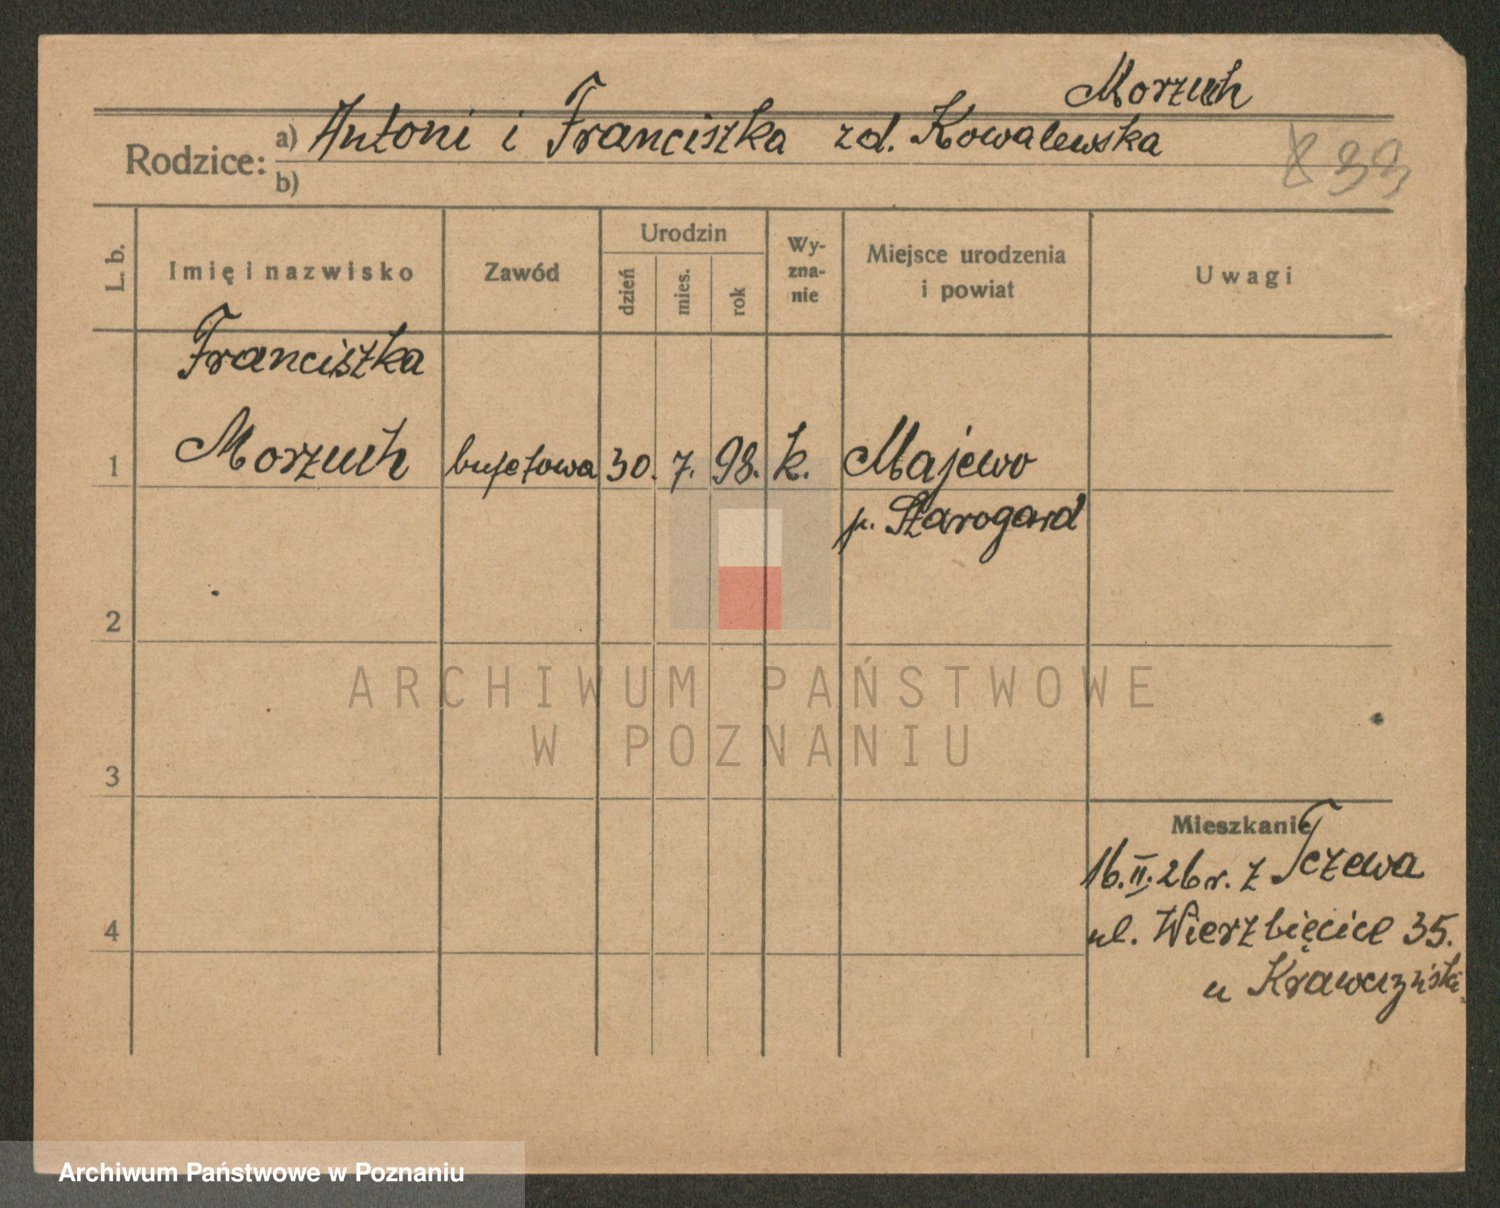 Morzuch
Rodzice: a) Antoni i Franciszka zd. Kowalewska
b)
833
L. b.
Imię i nazwisko
Zawód
Urodzin
dzień
mies.
rok
Wy-
zna-
nie
Miejsce urodzenia
i powiat
Uwagi
Franciszka
1 Morzuch bufetowa 30. 7. 98. k. Majewo
p. Starogard
2
3
Mieszkanie
16.II.26 r. z Tczewa
4 ul. Wierzbięcice 35.
u
ARCHIWUM PAŃSTWOWE
W POZNANIU
Archiwum Państwowe w Poznaniu